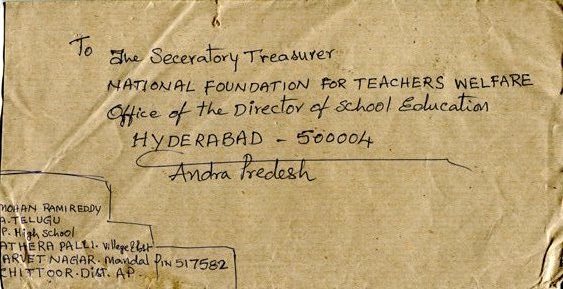 To
The Seceratory Treasurer
NATIONAL FOUNDATION FOR TEACHERS WELFARE
Office of the Director of School Education
HYDERABAD - 500004
Andra Predesh
MOHAN RAMIREDDY
A. TELUGU
P. High School
ATHERA PALLI. Village & Post
ARVET NAGAR. Mandal PIN 517582
CHITTOOR. Dist. AP.